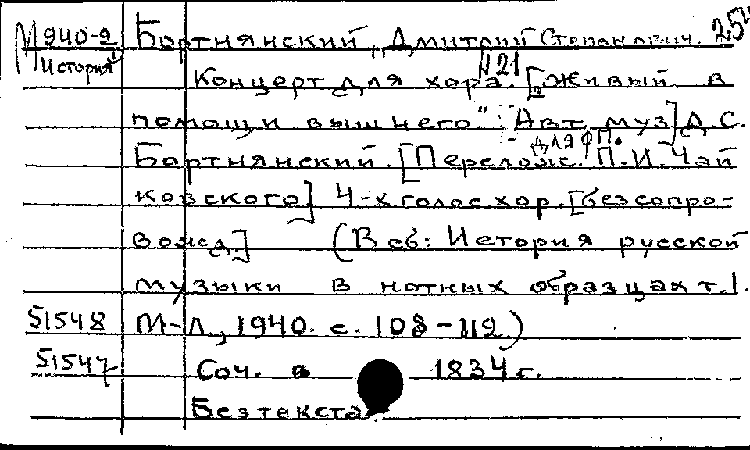 М940-2 Бортнянский, Дмитрий Степанович. 254
История
Концерт для хора. №21 ["Живый в
помощи вышнего". Авт. муз] Д. С.
Бортнянский. [Перелож. для фп. П. И. Чай
ковского] 4-х голос хор. [без сопро-
вожд] (В сб: История русской
музыки в нотных образцах т. 1.
51548 М-Л., 1940. с. 108-112)
51547 Соч. в 1834 г.
Без текста